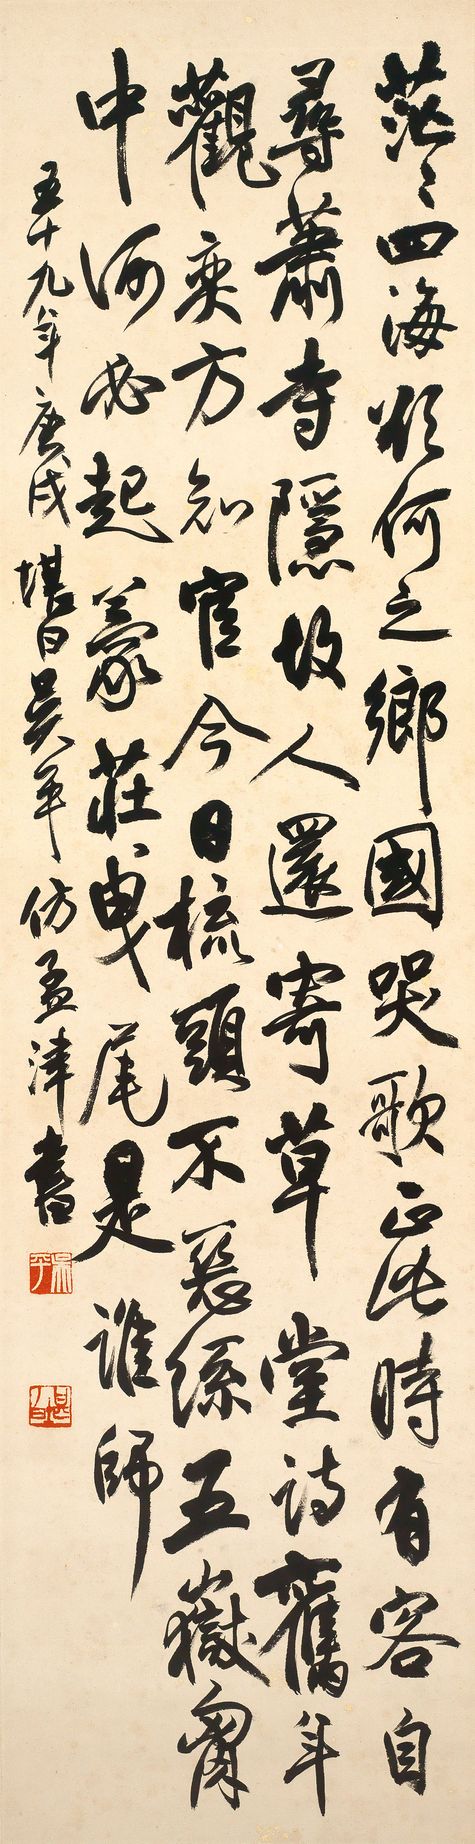 茫〻四海欲何之鄉國哭歌正此時有客自
尋蕭寺隱故人還寄草堂詩舊年
觀奕方知宦今日梳頭不絲五嶽胸
中何必起蒙莊曳尾是誰師
五十九年庚戌堪白吳平仿孟津書
吳平
堪白